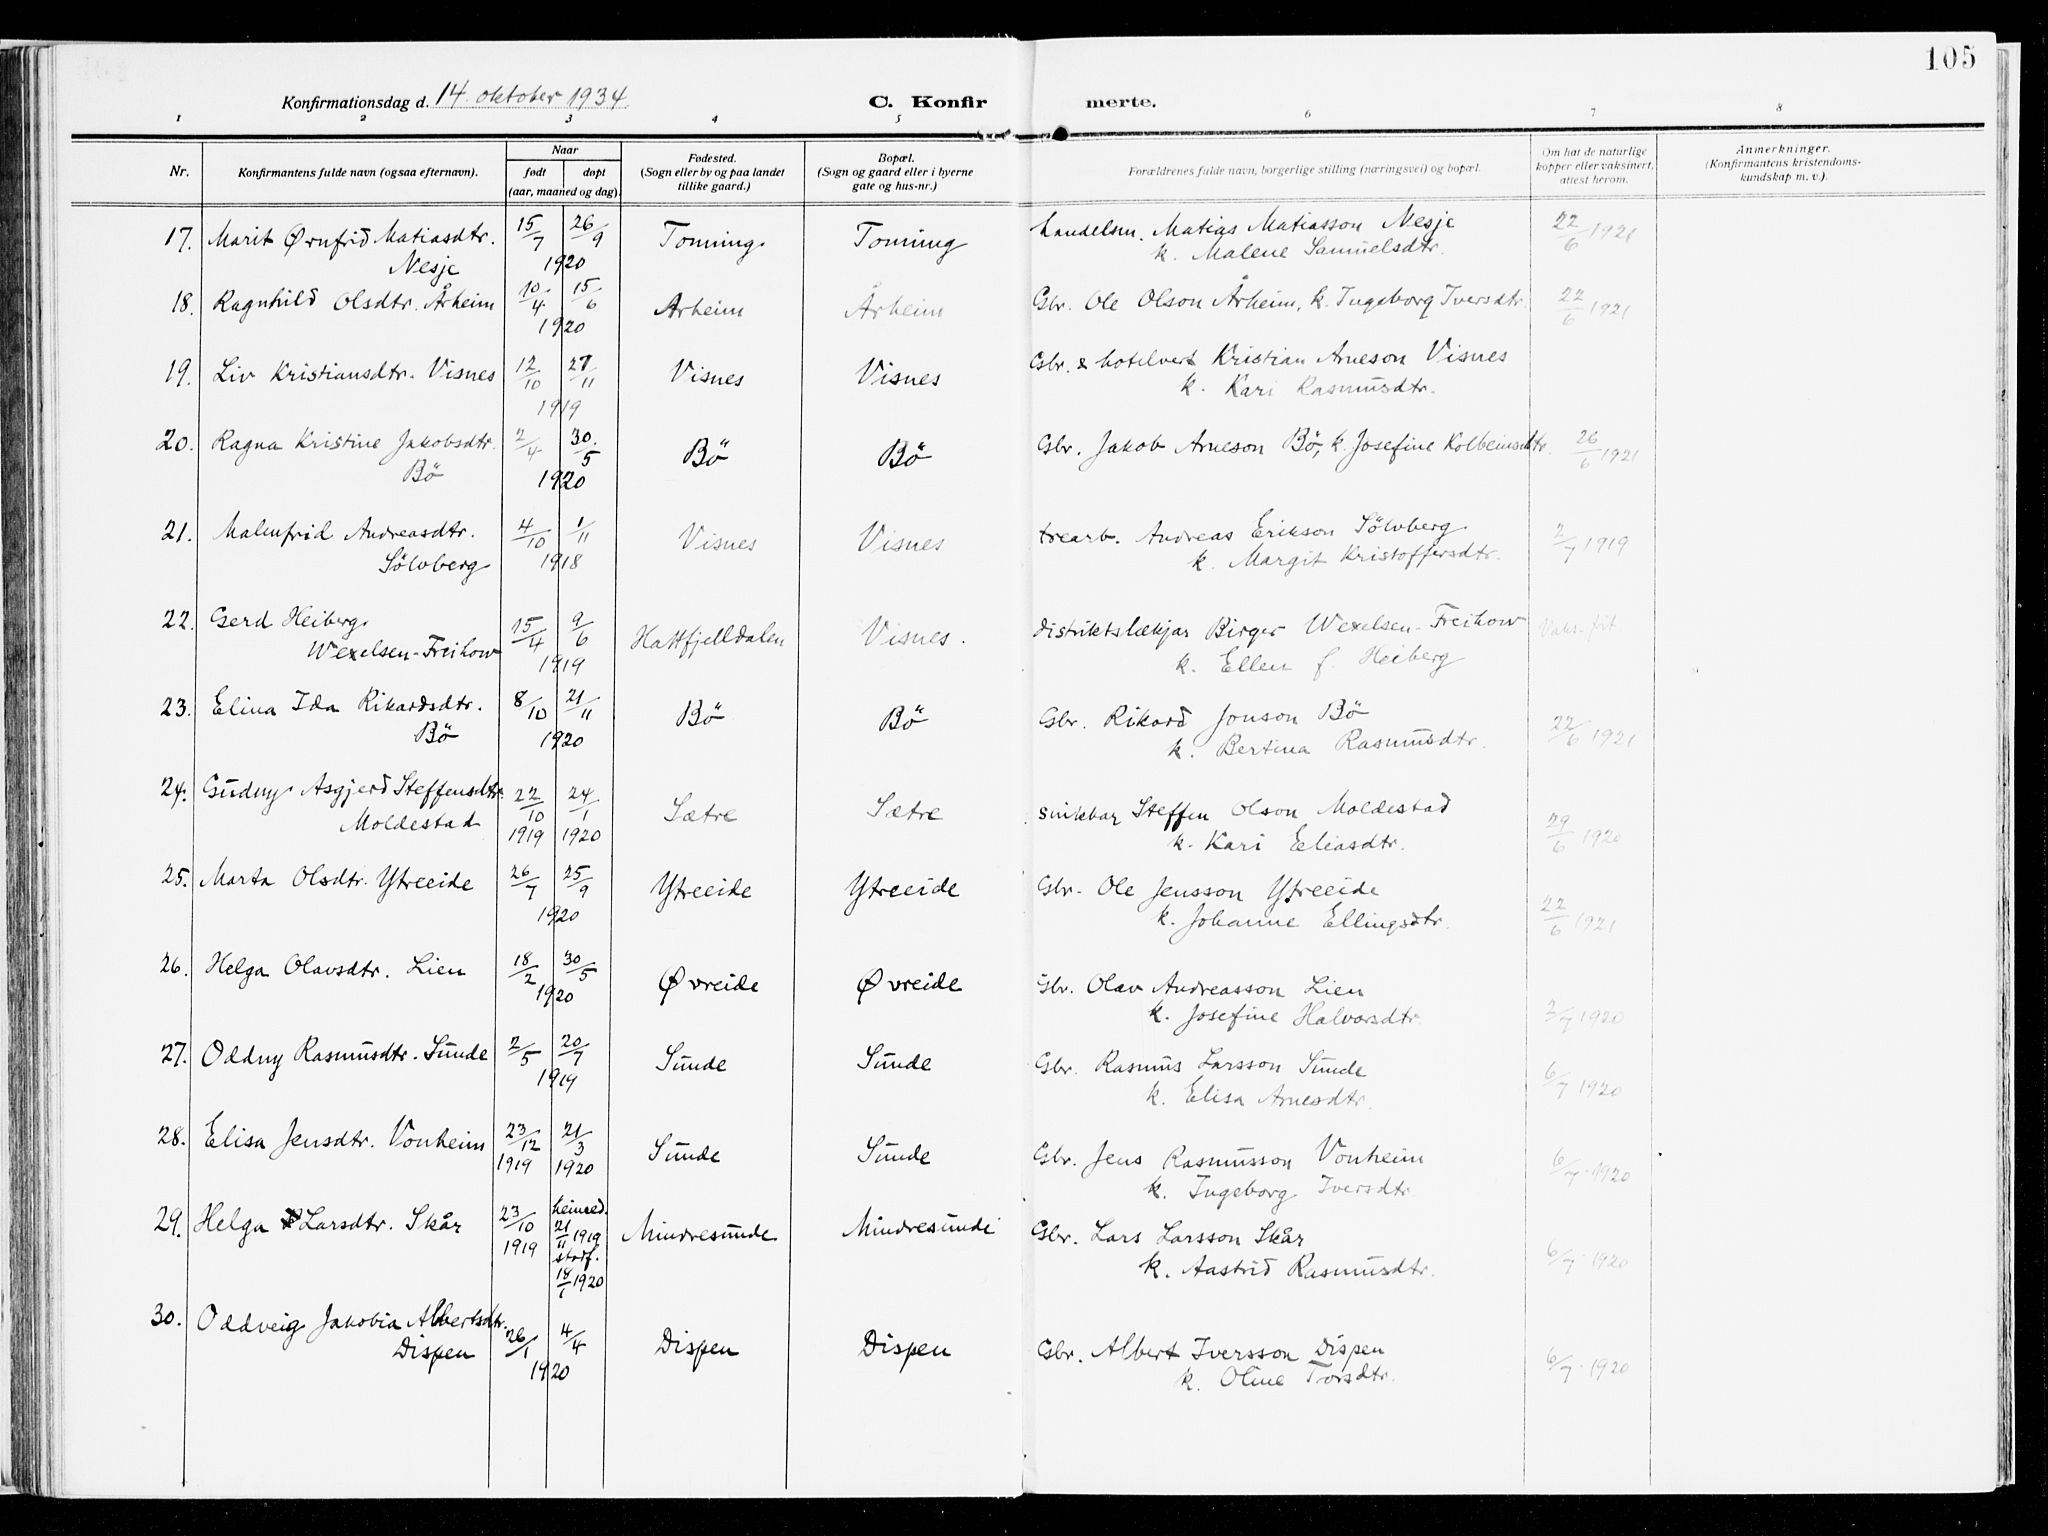 105
Konfirmationsdag d. 14. oktober 1934. C. Konfir merte.
1 2 3 4 5 6 7 8
Nr. Konfirmantens fulde navn (ogsaa efternavn). Naar født døpt (aar, maaned og dag). Fødested. (Sogn eller by og paa landet tillike gaard.) Bopæl. (Sogn og gaard eller i byerne gate og hus-nr.) Forældrenes fulde navn, borgerlige stilling (næringsvei) og bopæl. Om hat de naturlige kopper eller vaksinert, attest herom. Anmerkninger. (Konfirmantens kristendoms-kundskap m. v.).
17. Marit Ørnfrid Matiasdtr. 15/7 26/9 Tonning Tonning handelsm. Matias Matiasson Nesje 22/6 1921
Nesje 1920 k. Malene Samuelsdtr.
18. Ragnhild Olsdtr. Årheim 10/4 15/6 Årheim Årheim Gbr. Ole Olson Årheim, k. Ingeborg Iversdtr. 22/6 1921
1920
19. Liv Kristiansdtr. Visnes 12/10 27/11 Visnes Visnes Gbr. & hotelvert Kristian Arneson Visnes
1919 k. Kari Rasmusdtr.
20. Ragna Kristine Jakobsdtr. 2/4 30./5 Bö Bö Gbr. Jakob Arneson Bö, k. Josefine Kolbeinsdtr. 26/6 1921
Bö 1920
21. Malmfrid Andreasdtr. 4/10 1/11 Visnes Visnes trearb. Andreas Erikson Sölvberg 2/7 1919
Sölvberg 1918 k. Margit Kristoffersdtr.
22. Gerd Heiberg 15/4 9/6 Hattfjelldalen Visnes. distriktslækjar Birger Wexelsen-Freihow Vaks.
Wexelsen-Freihow 1919 k. Ellen f. Heiberg
23. Elina Ida Rikardsdtr. 8/10 21/11 Bö Bö Gbr. Rikard Jonson Bö 22/6 1921
Bö 1920 k. Bertina Rasmusdtr.
24. Gudny Asgjerd Steffensdtr. 22/10 24/1 Sætre Sætre snikkar Steffen Olson Moldestad 29/6 1920
Moldestad 1919 1920 k. Kari Eliasdtr.
25. Marta Olsdtr. Ytreeide 26/7 25/9 Ytreeide Ytreeide Gbr. Ole Jensson Ytreeide 22/6 1921
1920 k. Johanne Ellingsdtr.
26. Helga Olavsdtr. Lien 18/2 30/5 Øvreide Øvreide Gbr. Olav Andreasson Lien 2/7 1920
1920 k. Josefine Halvorsdtr
27. Oddny Rasmusdtr. Sunde 2/5 20/7 Sunde Sunde Gbr. Rasmus Larsson Sunde 6/7 1920
1919 k. Elisa Arnesdtr.
28. Elisa Jensdtr. Vonheim 23/12 21/3 Sunde Sunde Gbr. Jens Rasmusson Vonheim 6/7 1920
1919 1920 k. Ingeborg Iversdtr.
29. Helga Larsdtr. Skår 23/10 heimed. Mindresunde Mindresunde Gbr. Lars Larsson Skår 6/7 1920
1919 21/11 1919 k. Aastrid Rasmusdtr.
stadf.
18/1 1920
30. Oddveig Jakobia Albertsdtr. 26/1 4/4 Dispen Dispen Gbr. Albert Iversson Dispen 6/7 1920
Dispen 1920 k. Oline Torsdtr.